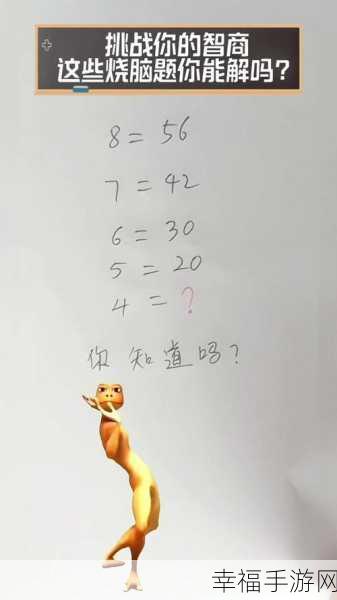 挑战你的智商
这些烧脑题你能解吗?
8 = 56
7 = 42
6 = 30
5 = 20
4 = ?
你知道吗?
幸福手游网